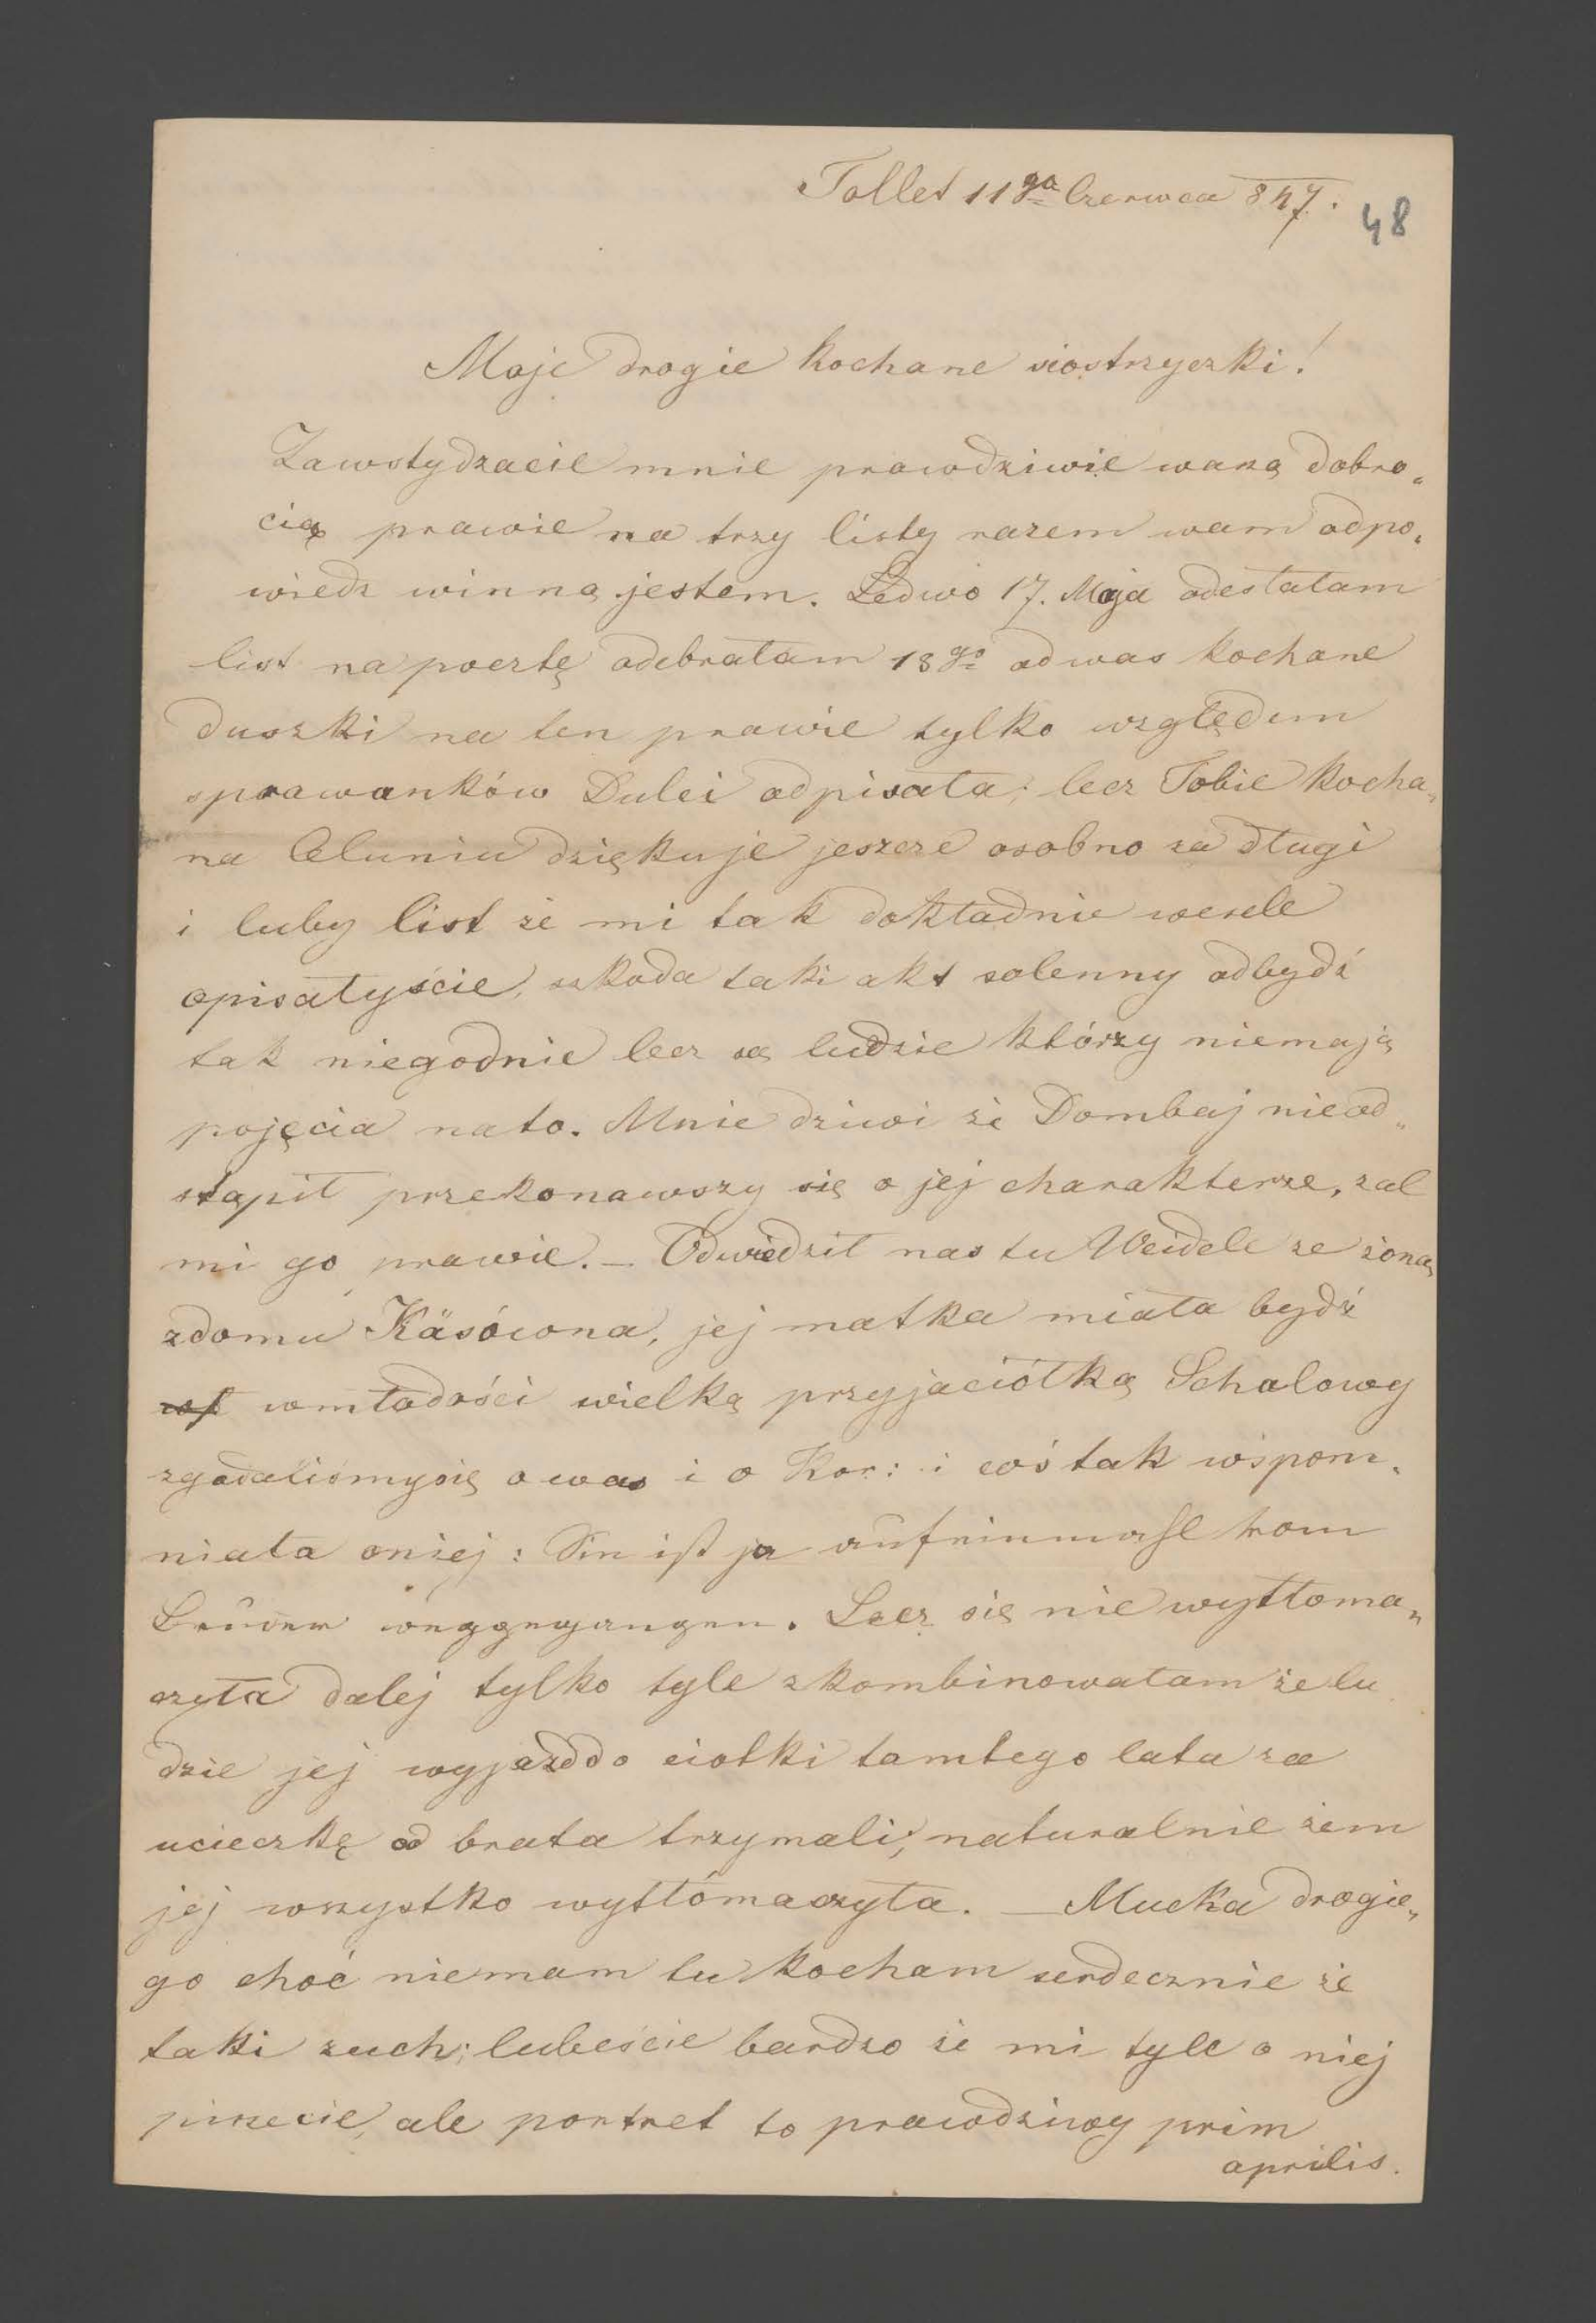 Tollet 11go Czerwca 847.
48
Moje drogie kochane siostrzyczki!
Zawstydzacie mnie prawdziwie waszą dobro„
cią prawie na trzy listy razem wam odpo„
wiedz winną jestem. Ledwo 17. Maja odesłałam
list na pocztę odebrałam 18go od was kochane
duszki na ten prawie tylko względem
sprawunków Dulci odpisała; lecz Tobie kocha„
na Celuniu dziękuje jeszcze osobno za długi
i luby list że mi tak dokładnie wesele
opisałyście, szkoda taki akt solenny odbydź
tak niegodnie lecz są ludzie którzy niemają
pojęcia nato. Mnie dziwi że Dombaj nieod„
stąpił przekonawszy się o jej charakterze, zal
mi go prawie. – Odwiedził nas tu Weidele ze żoną
zdomu Käsówona, jej matka miała bydź
wmłodości wielką przyjaciółką Schalowy
zgadaliśmysię o was i o Kor: i coś tak wspom„
niała oniej: Sie ist ja auf einmahl vom
Bruder weggegangen. Lecz się nie wytłoma„
czyła dalej tylko tyle zkombinowałam że lu
dzie jej wyjazd do ciotki tamtego lata za
ucieczkę od brata trzymali; naturalnie żem
jej wszystko wytłómaczyła. – Mucka drogie„
go choć nieznam tu kocham serdecznie że
taki zuch; lubeście bardzo że mi tyle o niej
piszecie, ale portret to prawdziwy prim
aprilis.